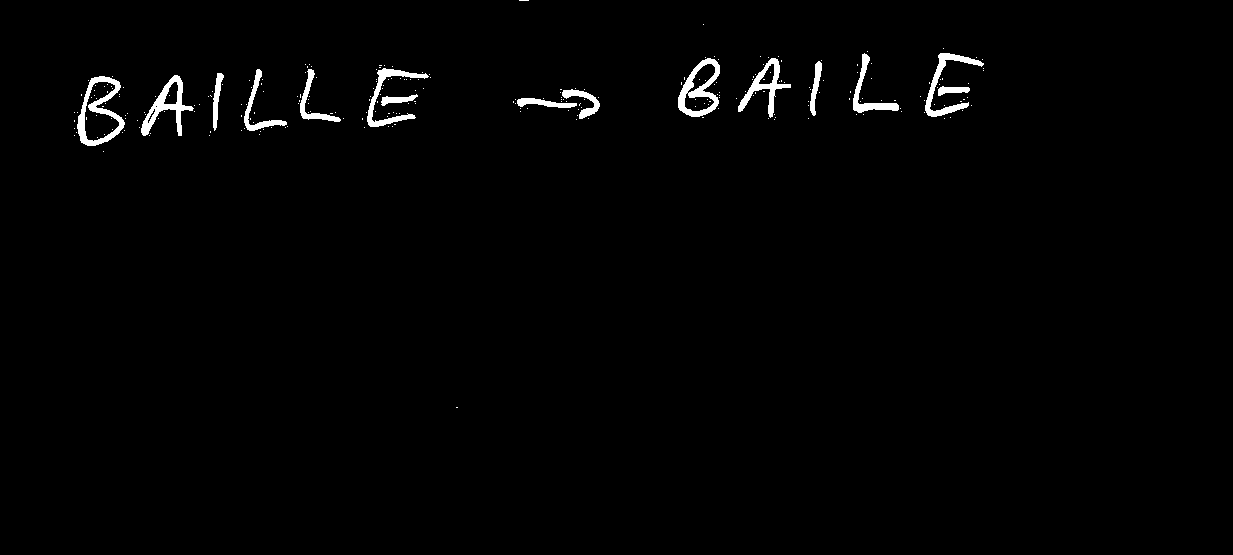 BAILLE → BAILE